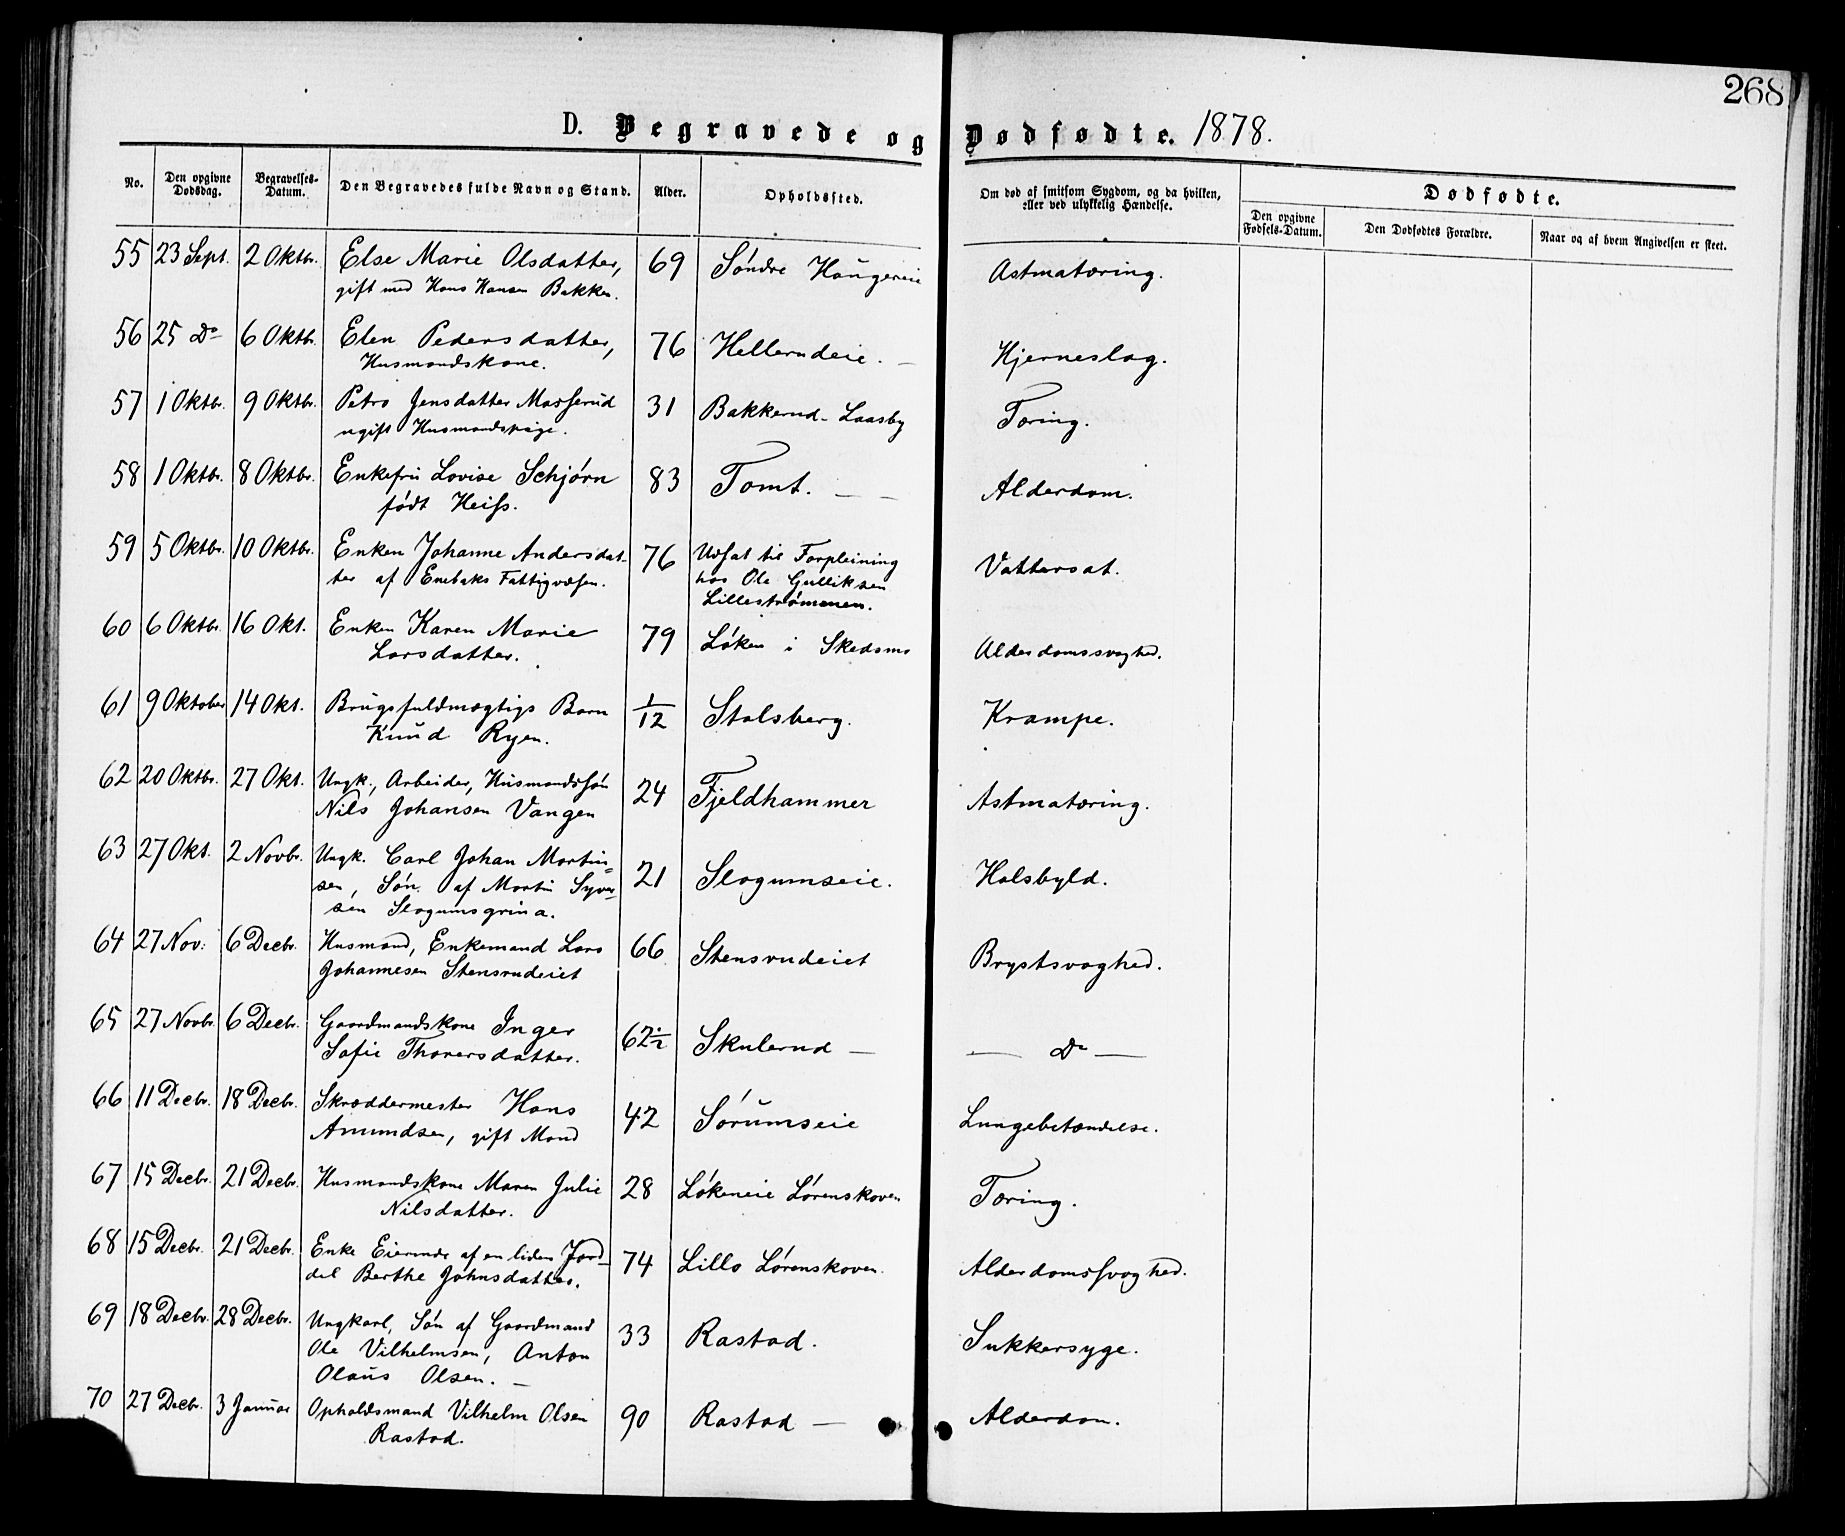 268
D. Begravede og Dødfødte. 1878.
No. Den opgivne Dødsdag. Begravelses-Datum. Den Begravedes fulde Navn og Stand. Alder. Opholdssted. Om død af smitsom Sygdom, og da hvilken, eller ved ulykkelig Hændelse. Dødfødte.
Den opgivne Fødsels-Datum. Den Dødfødtes Forældre. Naar og af hvem Angivelsen er skeet.
55 23 Sept. 2 Oktbr. Else Marie Olsdatter, 69 Søndre Haugereie Astmatæring.
gift med Hans Hansen Bakken.
56 25 Do 6 Oktbr. Elen Pedersdatter, 76 Hellerudeie. — Hjerneslag.
Husmandskone.
57 1 Oktbr. 9 Oktbr. Petra Jensdatter Masserud 31 Bakkerud - Laasby Tæring.
ugift Husmandspige.
58 1 Oktbr. 8 Oktbr. Enkefru Lovise Schjørn 83 Tomt. — — Alderdom.
født Heiss.
59 5 Oktbr. 10 Oktbr. Enken Johanne Andersdat- 76 Udsat til Forpleining Vattersot.
ter af Enebaks Fattigvæsen. hos Ole Gulliksen
Lillestrømmen.
60 6 Oktbr. 16 Okt. Enken Karen Marie 79 Løken i Skedsmo Alderdomssvaghed.
Larsdatter.
61 9 Oktober 14 Okt. Brugsfuldmægtigs Barn 1/12 Stalsberg. Krampe.
Knud Ryen.
62 20 Oktbr. 27 Okt. Ungk., Arbeider, Husmandssøn 24 Fjeldhammer Astmatæring.
Nils Johansen Vangen
63 27 Okt. 2 Novbr. Ungk. Carl Johan Martin- 21 Slogumseie. Halsbyld.
sen, Søn af Martin Syver-
sen Slogumsgrina.
64 27 Nov: 6 Decbr. Husmand, Enkemand Lars 66 Stensrudeiet Brystsvaghed.
Johannesen Stensrudeiet
65 27 Novbr. 6 Decbr. Gaardmandskone Inger 62½ Skulerud — — Do —
Sofie Thorersdatter.
66 11 Decbr. 18 Decbr. Skræddermester Hans 42 Sørumseie Lungebetændelse.
Amundsen, gift Mand
67 15 Decbr. 21 Decbr. Husmandskone Maren Julie 28 Løkeneie Lørenskoven Tæring.
Nilsdatter.
68 15 Decbr. 21 Decbr. Enke Eierinde af en liden Jord- 74 Lille Lørenskoven. Alderdomssvaghed.
del Berthe Johnsdatter.
69 18 Decbr. 28 Decbr. Ungkarl, Søn af Gaardmand 33 Rastad. Sukkersyge.
Ole Vilhelmsen, Anton
Olaus Olsen. —
70 27 Decbr. 3 Januar Opholdsmand Vilhelm Olsen 90 Rastad — Alderdom.
Rastad.